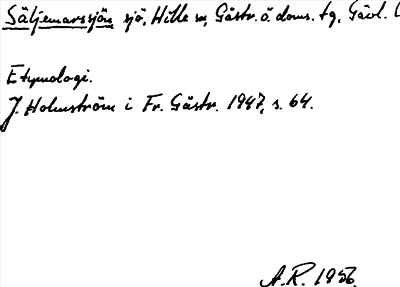 Säljemarssjön sjö, Hille sn, Gästr. ö. doms. tg, Gävl. l
Etymologi.
J. Holmström i Fr. Gästr. 1947, s. 64.
A.R. 1956.